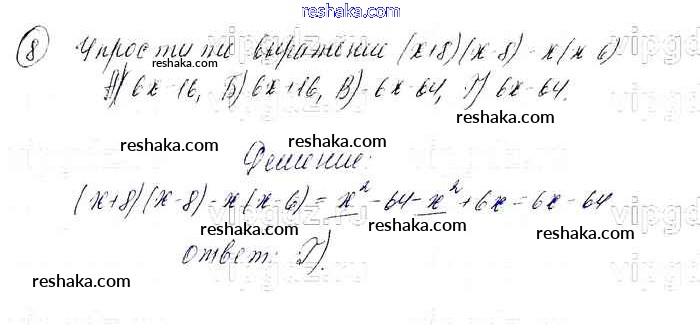 reshaka.com
8 Упростите выражение (x+8)(x-8)-x(x-6)
А) 6x-16, Б) 6x+16, В) -6x-64, Г) 6x-64.
reshaka.com reshaka.com reshaka.com
Решение:
reshaka.com reshaka.com
(x+8)(x-8)-x(x-6)=x²-64-x²+6x=6x-64
reshaka.com reshaka.com
ответ: Г).
reshaka.com reshaka.com
reshaka.com